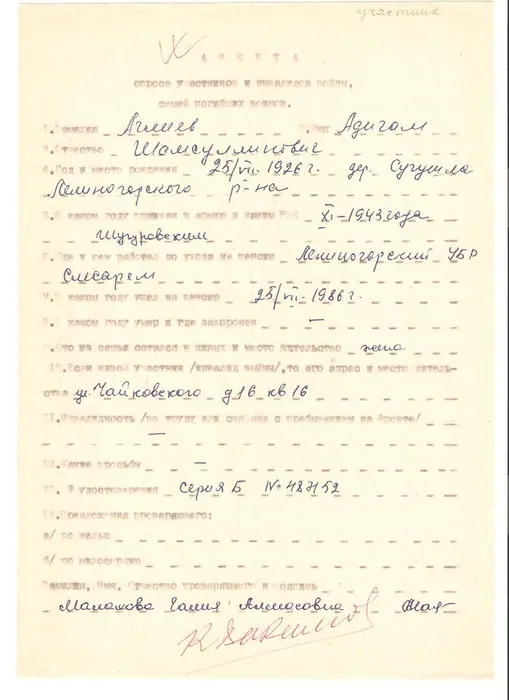 участник
АНКЕТА
опроса участников и инвалидов войны,
семей погибших воинов.
1. Фамилия Аглиев 2. Имя Адигам
3. Отчество Шамсуллинович
4. Год и место рождения 25/VII-1926 г. дер. Сугушла
Лениногорского р-на
5. В каком году призван в армию и каким РВК XI-1943 года
Шугуровским
6. Где и кем работал до ухода на пенсию Лениногорский УБР
Слесарем
7. В каком году ушел на пенсию 25/VII-1986 г.
8. В каком году умер и где захоронен —
9. Кто из семьи остался в живых и место жительство жена
10. Если живой участник /инвалид войны/, то его адрес и место житель-
ства ул. Чайковского д 16 кв 16
11. Инвалидность /по труду или связана с пребыванием на фронте/
—
12. Какие просьбы —
13. № удостоверения серия Б № 487152
14. Предложения проверяющего:
а/ по жилью
б/ по милосердию
Фамилия, Имя, Отчество проверяющего и подпись
Малахова Галия Алмасовна